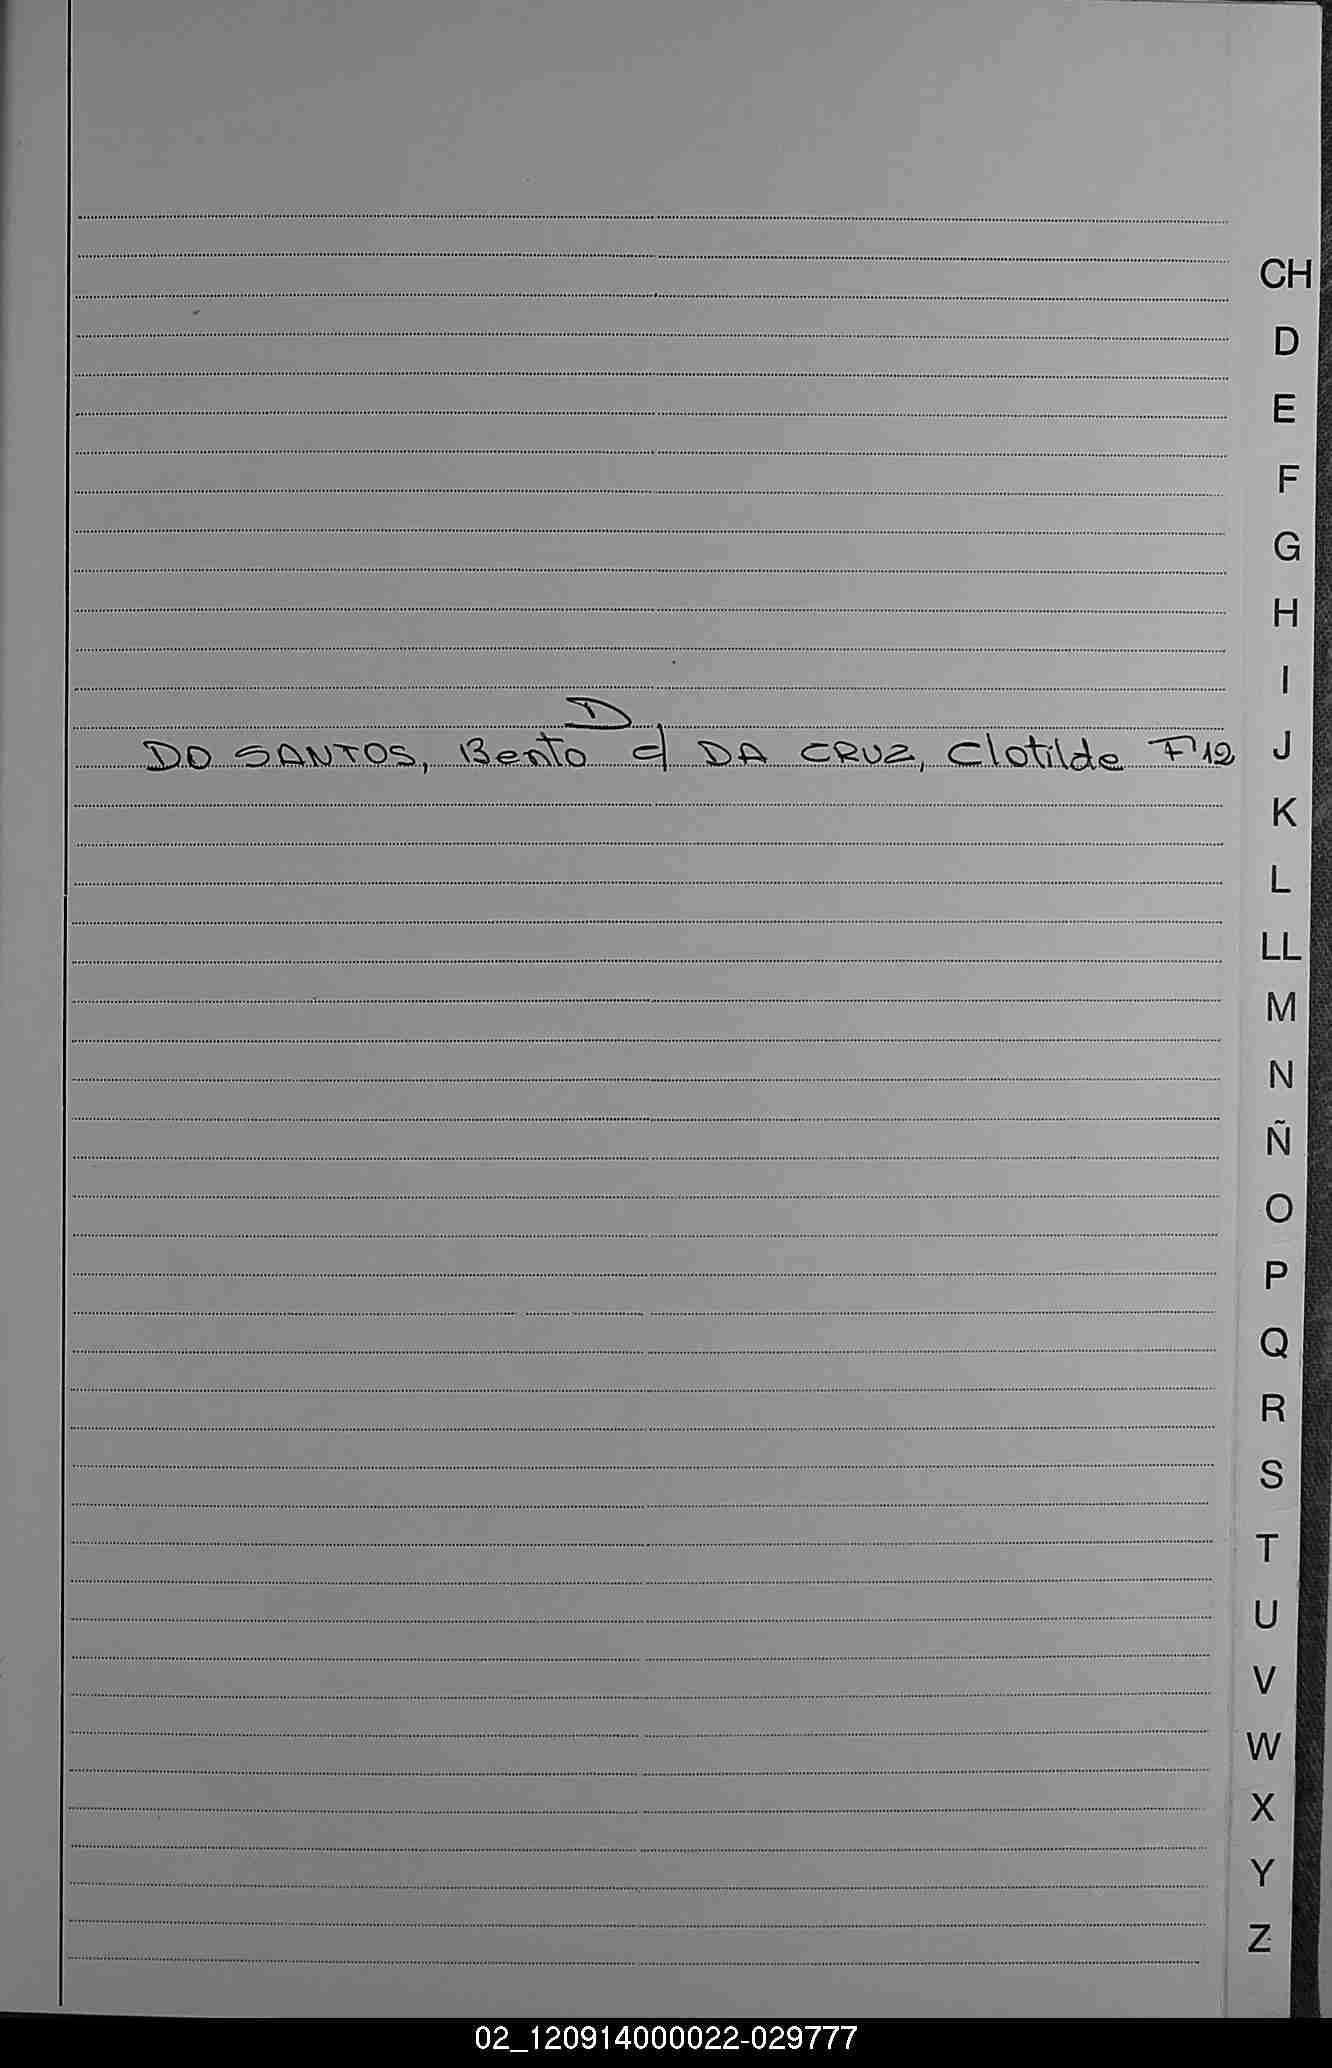 D
DO SANTOS, Bento c/ DA CRUZ, Clotilde Fº12
CH
D
E
F
G
H
I
J
K
L
LL
M
N
Ñ
O
P
Q
R
S
T
U
V
W
X
Y
Z
02_120914000022-029777